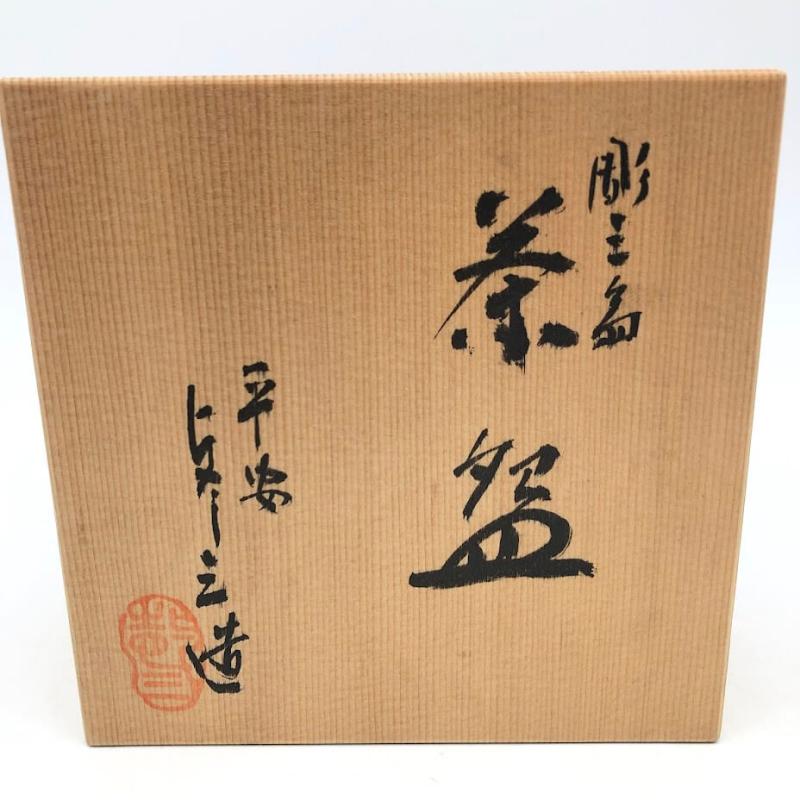 彫三島
茶盌
平安
三造